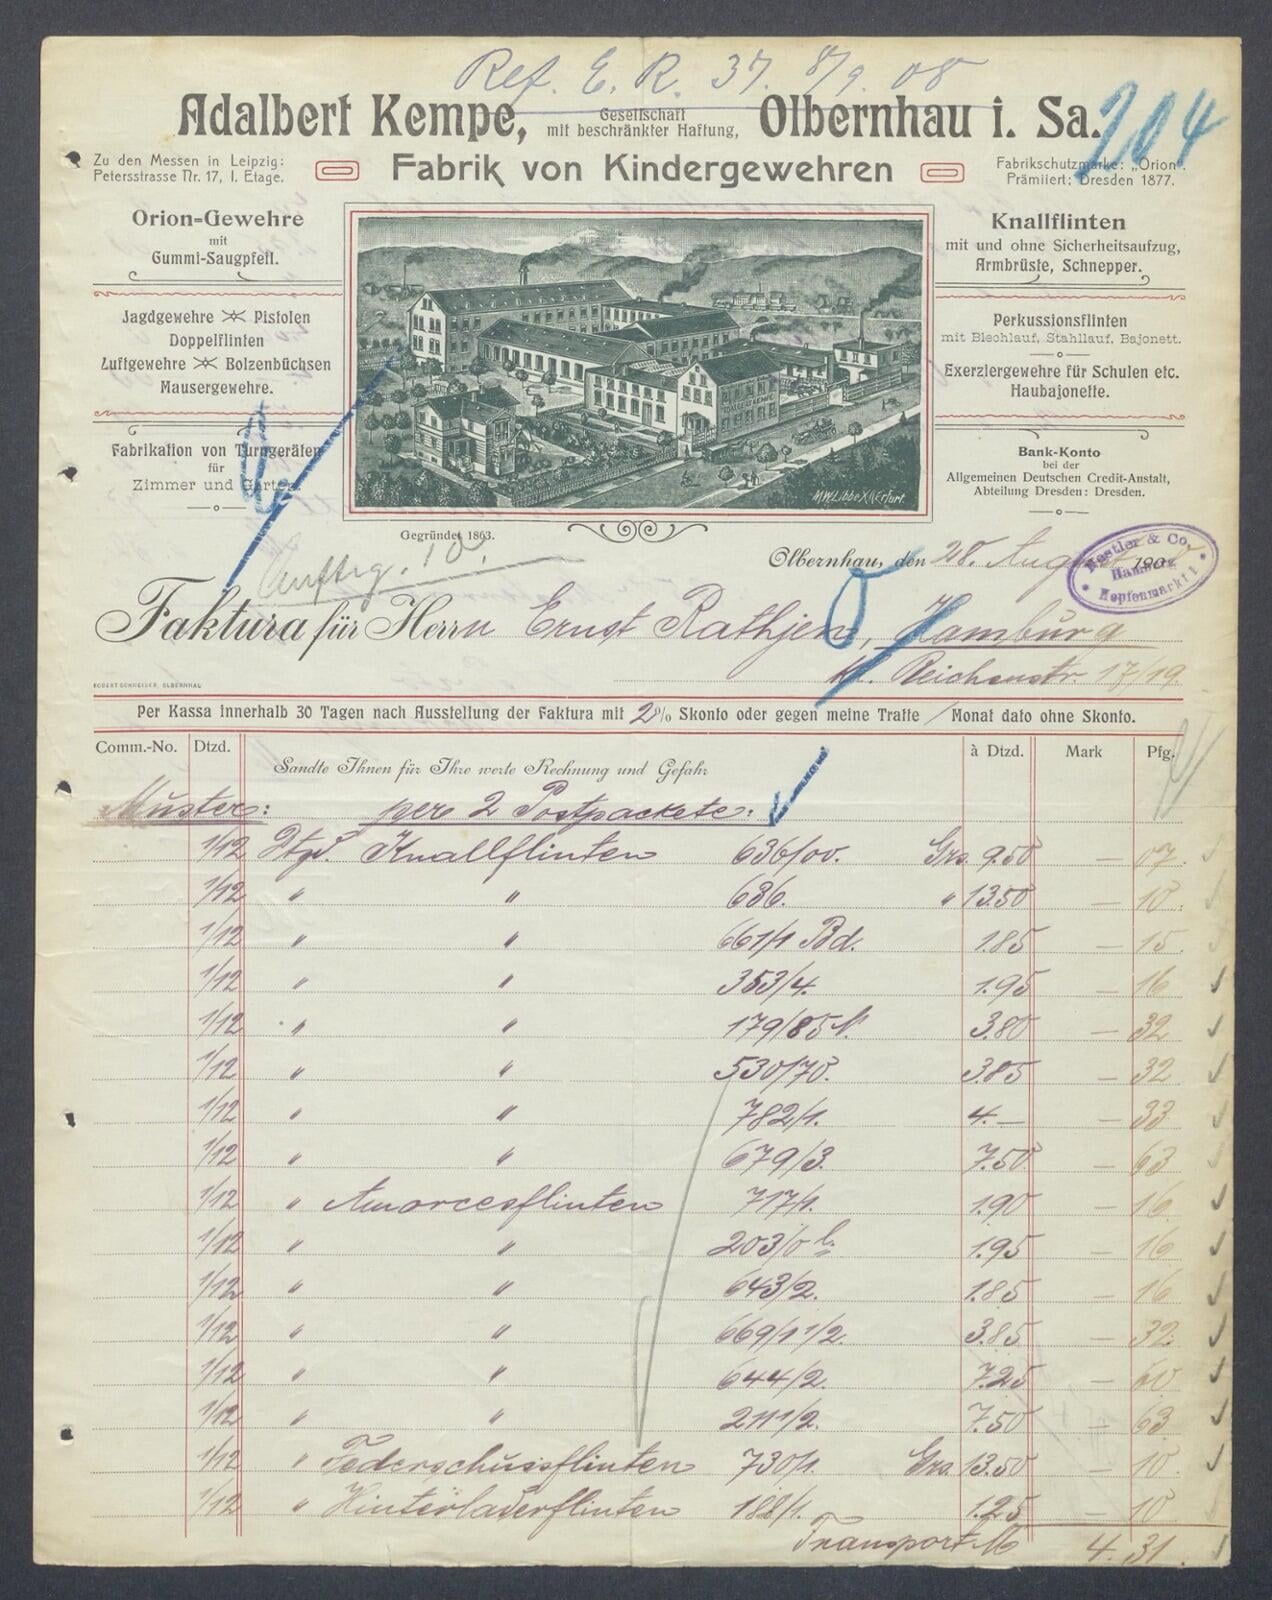 Ref. E. R. 37. 8/9. 08
204
Adalbert Kempe, Gesellschaft mit beschränkter Haftung, Olbernhau i. Sa.
Zu den Messen in Leipzig:
Petersstrasse Nr. 17, I. Etage.
Fabrik von Kindergewehren
Fabrikschutzmarke: „Orion".
Prämiiert: Dresden 1877.
Orion=Gewehre
mit
Gummi-Saugpfeil.
Jagdgewehre Pistolen
Doppelflinten
Luftgewehre Bolzenbüchsen
Mausergewehre.
Fabrikation von Turngeräten
für
Zimmer und Garten.
ADALBERT KEMPE
M.W. Libbe XA Erfurt.
Knallflinten
mit und ohne Sicherheitsaufzug,
Armbrüste, Schnepper.
Perkussionsflinten
mit Blechlauf, Stahllauf, Bajonett.
Exerziergewehre für Schulen etc.
Haubajonette.
Bank-Konto
bei der
Allgemeinen Deutschen Credit-Anstalt,
Abteilung Dresden: Dresden.
Gegründet 1863.
Olbernhau, den 28. August 190
Nestler & Co.
Hamburg
Hopfenmarkt 1
Auftrg. 1a.
Faktura für Herrn Ernst Rathjen, Hamburg
kl. Reichenstr. 17/19.
ROBERT SCHNEIDER, OLBERNHAU
Per Kassa innerhalb 30 Tagen nach Ausstellung der Faktura mit 2% Skonto oder gegen meine Tratte / Monat dato ohne Skonto.
Comm.-No. Dtzd. à Dtzd. Mark Pfg.
Sandte Ihnen für Ihre werte Rechnung und Gefahr
Muster: per 2 Postpackete:
1/12 Dtzd. Knallflinten 636/00. Grs. 9.50 — 07.
1/12 " " 636. " 13.50 — 10.
1/12 " " 661/1 Bd. 1.85 — 15
1/12 " " 353/4. 1.95 — 16
1/12 " " 179/85 3.80 — 32
1/12 " " 530/70. 3.85 — 32
1/12 " " 782/1. 4.— — 33
1/12 " " 679/3. 7.50 — 63
1/12 " Amorcesflinten 717/1. 1.90 — 16
1/12 " " 203/0 1.95 — 16
1/12 " " 643/2. 1.85 — 16
1/12 " " 669/1 1/2. 3.85 — 32.
1/12 " " 644/2. 7.25 — 60
1/12 " " 211 1/2. 7.50 — 63
1/12 " Federschussflinten 730/1. Grs. 13.50 — 10.
1/12 " Hinterladerflinten 188/1. 1.25 — 10
Transport M 4.31.